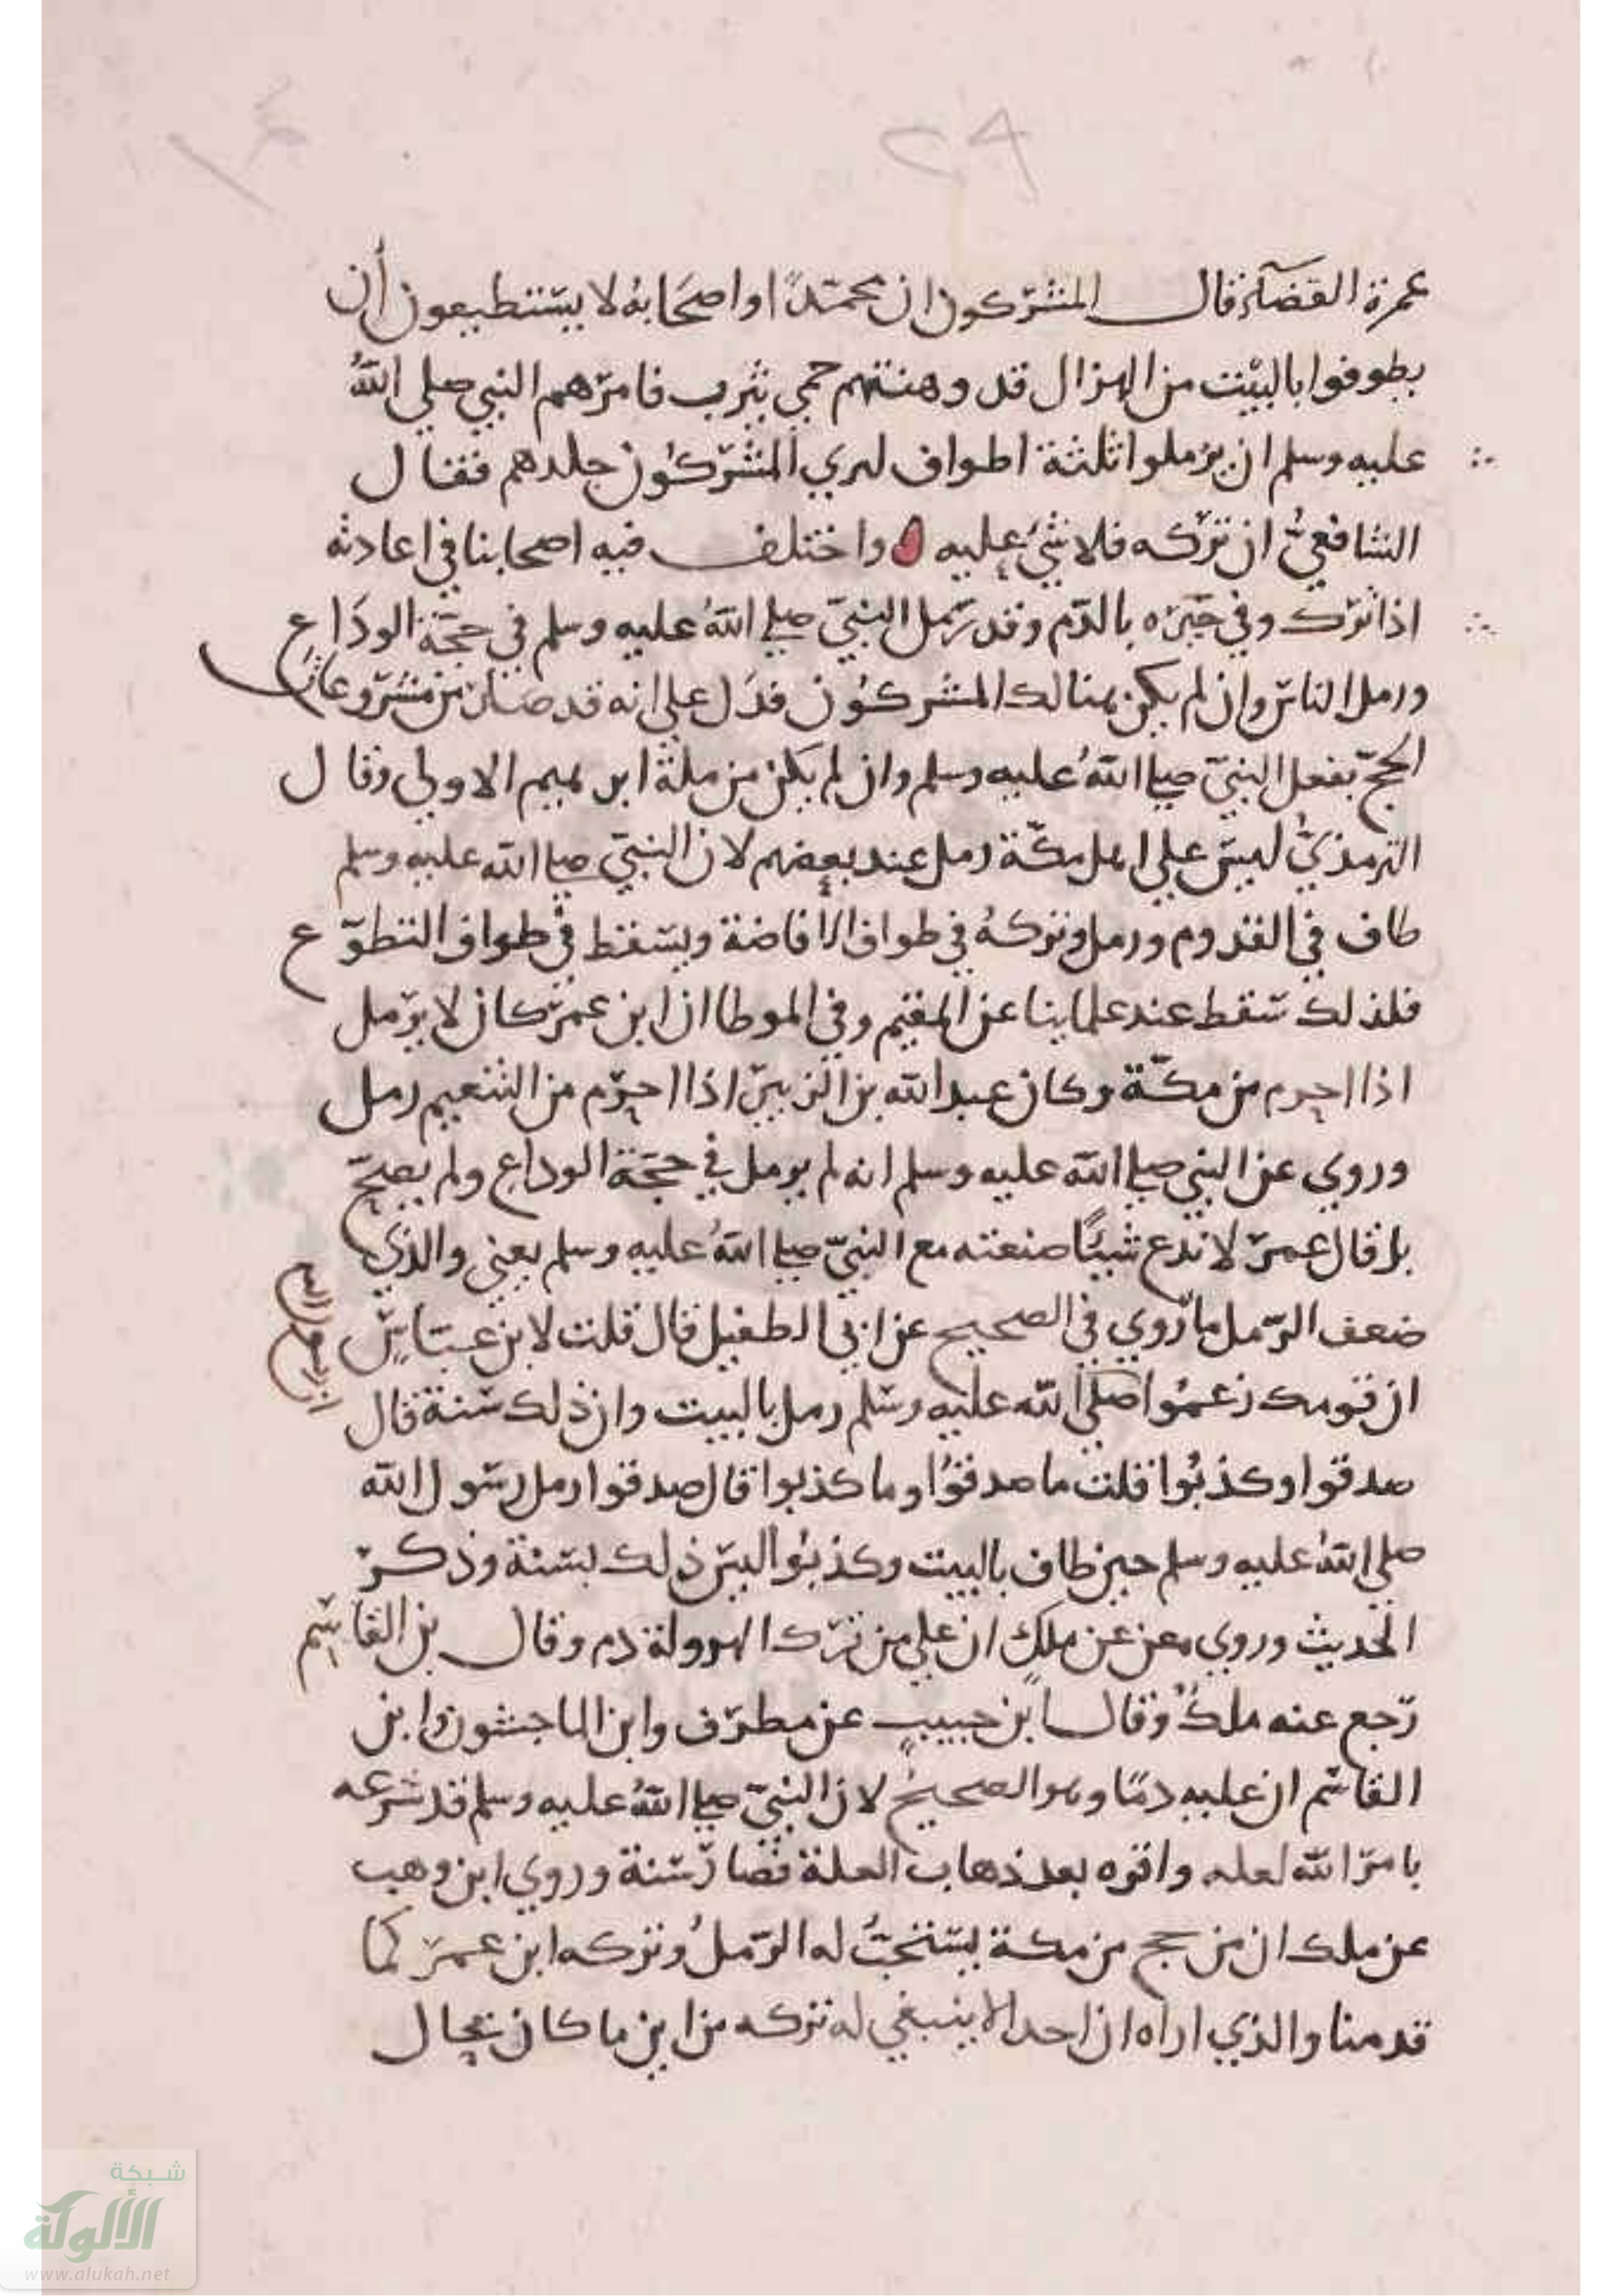 ٢٩
عمرة القضآء فقال المشركون ان محمدًا واصحابه لا يستطيعون أن
يطوفوا بالبيت من الهزال قد وهنتهم حمي يثرب فامرهم النبي صلي اللهُ
عليه وسلم ان يرملوا ثلثة اطواف ليري المشركون جلدهم فقال
الشافعيُّ ان تركه فلا شيء عليه واختلف فيه اصحابنا في اعادته
اذا ترك وفي جبره بالدم وقد رمل النبيّ صلي اللهُ عليه وسلم في حجة الوداع
ورمل الناس وان لم يكن هنالك المشركون فدل علي انه قد صار من مشروعات
الحجّ بفعل النبيّ صلي اللهُ عليه وسلم وان لم يكن من ملة ابرهيم الاولي وقال
الترمذيّ ليس علي اهل مكّة رمل عند بعضهم لان النبيّ صلي الله عليه وسلم
طاف في القدوم ورمل وتركهُ في طواف الافاضة ويسقط في طواف التطوّع
فلذلك سقط عند علماينا عن المقيم وفي الموطا ان ابن عمر كان لا يرمل
اذا احرم من مكّة وكان عبد الله بن الزبير اذا احرم من التنعيم رمل
وروي عن النبي صلي الله عليه وسلم انه لم يرمل في حجة الوداع ولم يصح
بل قال عمر لا ندع شيئًا صنعته مع النبيّ صلي اللهُ عليه وسلم يعني والذي
ضعف الرمل ما روي في الصحيح عن ابي الطفيل قال قلت لابن عباس
ان قومك زعموا صلي الله عليه وسلم رمل بالبيت وان ذلك سنة قال
صدقوا وكذبُوا قلت ما صدقوُا وما كذبوا قال صدقوا رمل رسول الله
صلي اللهُ عليه وسلم حين طاف بالبيت وكذبوُا ليس ذلك بسنة وذكر
الحديث وروي معن عن ملكٍ ان علي من ترك الهرولة دم وقال بن القاسم
رجع عنه ملكُ وقال ابن حبيبٍ عن مطرف وابن الماجشون وابن
القاسم ان عليه دمًا وهو الصحيحُ لان النبيّ صلي اللهُ عليه وسلم قد شرعه
بامر الله لعله واقره بعد ذهاب العلة فصار سنة وروي ابن وهب
عن ملك ان من حج من مكة يستحبُّ له الرملُ وتركه ابن عمر كما
قدمنا والذي اراه ان احدا لا ينبغي له تركه من اين ما كان بحال
شبكة
الألوكة
www.alukah.net